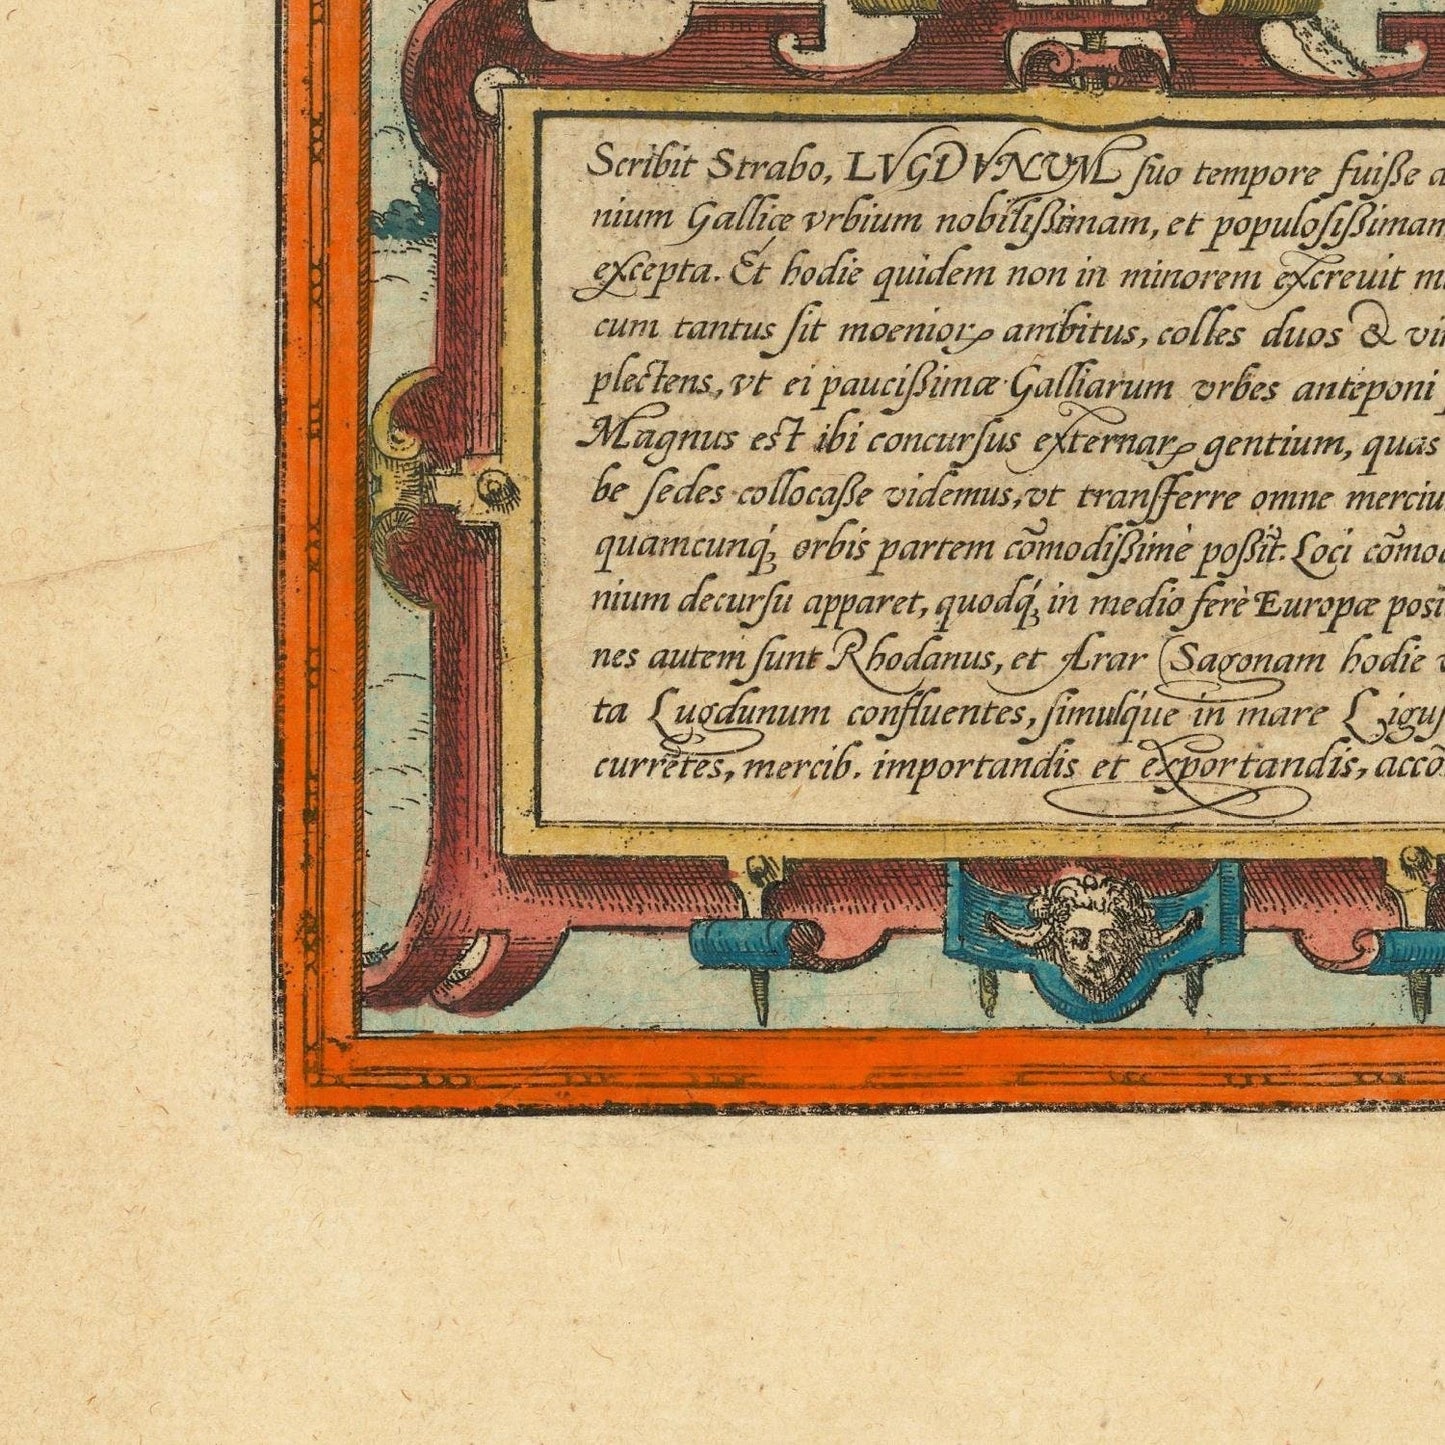 Scribit Strabo, LVGDVNVM suo tempore fuiße
nium Galliæ vrbium nobilißimam, et populosißimam
excepta. Et hodie quidem non in minorem excreuit
cum tantus sit moenioꝝ ambitus, colles duos &
plectens, vt ei paucißimæ Galliarum vrbes anteponi
Magnus est ibi concursus externaꝝ gentium, quas
be sedes collocaße videmus, vt transferre omne
quamcunq́ꝫ orbis partem cōmodißimè poßit. Loci
nium decursu apparet, quodq́ꝫ in medio ferè Europæ
nes autem sunt Rhodanus, et Arar (Sagonam hodie
ta Lugdunum confluentes, simulq́ue in mare
currētes, mercib. importandis et exportandis,